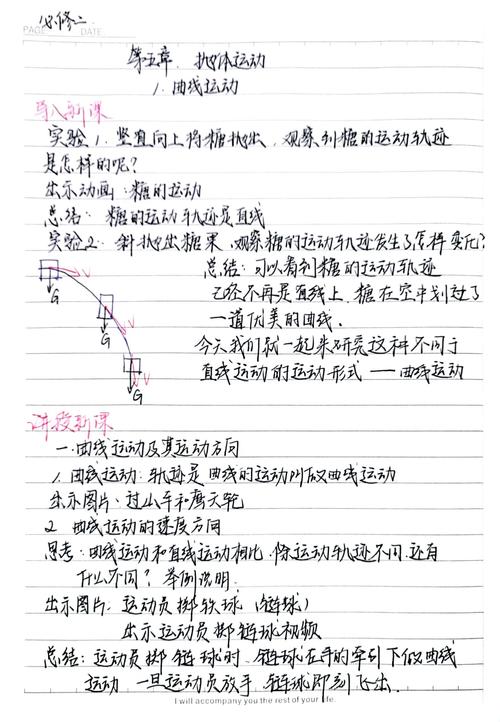 必修二
PAGE DATE
第五章、抛体运动
1. 曲线运动
导入新课
实验1. 竖直向上将糖抛出，观察到糖的运动轨迹
是怎样的呢？
出示动画：糖的运动
总结：糖的运动轨迹是直线
实验2. 斜抛出糖果，观察糖的运动轨迹发生了怎样变化？
总结：可以看到糖的运动轨迹
已经不再是直线上，糖在空中划过了
一道优美的曲线.
今天我们就一起来研究这种不同于
直线运动的运动形式——曲线运动
V
G
V
G
V
G
讲授新课
一.曲线运动及其运动方向
1. 曲线运动：轨迹是曲线的运动叫做曲线运动
出示图片：过山车和摩天轮
2. 曲线运动的速度方向
思考：曲线运动和直线运动相比，除运动轨迹不同，还有
什么不同？举例说明.
出示图片：运动员掷铁球（链球）
出示运动员掷链球视频
总结：运动员掷链球时，链球在手的牵引下做曲线
运动，一旦运动员放手，链球即刻飞出.
I will accompany you the rest of your life.